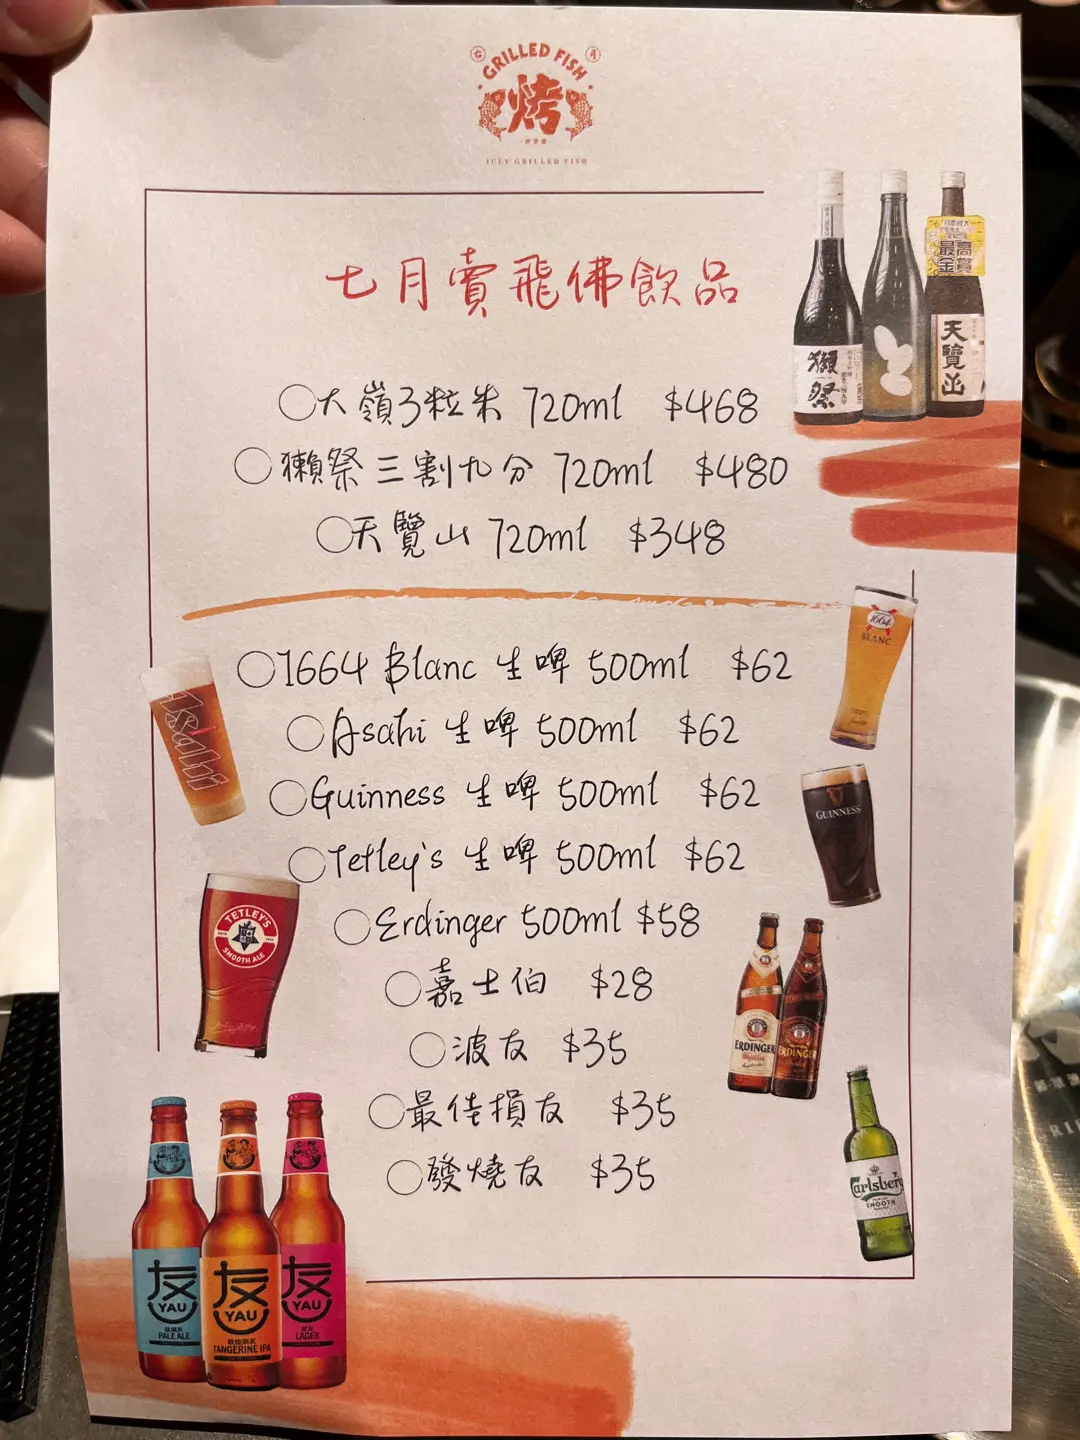 GRILLED FISH
烤
JULY GRILLED FISH
七月賣飛佛飲品
最高
金賞
獺祭
天覽山
大嶺3粒米 720ml $468
獺祭 三割九分 720ml $480
天覽山 720ml $348
1664 Blanc 生啤 500ml $62
1664
BLANC
Asahi 生啤 500ml $62
Asahi
Guinness 生啤 500ml $62
GUINNESS
Tetley's 生啤 500ml $62
TETLEY'S
SMOOTH ALE
Erdinger 500ml $58
ERDINGER
ERDINGER
嘉士伯 $28
波友 $35
最佳損友 $35
發燒友 $35
Carlsberg
SMOOTH
友
YAU
PALE ALE
友
YAU
TANGERINE IPA
友
YAU
LAGER